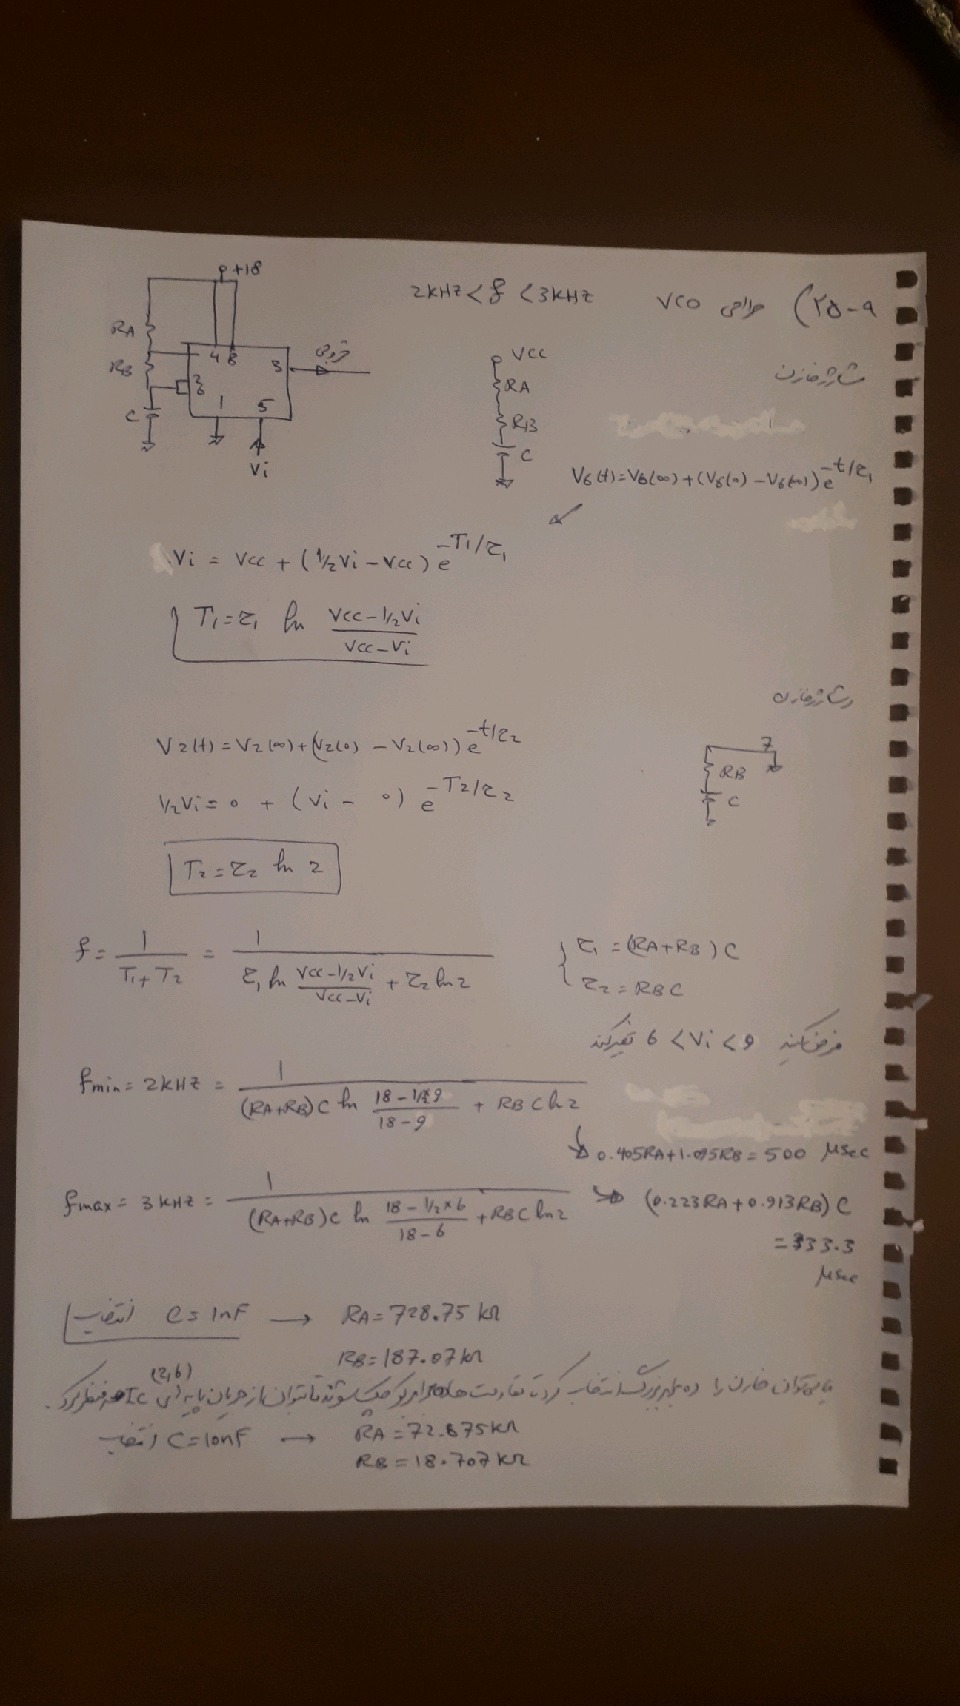 ۲۵-۹) طراحی VCO 2KHZ < f < 3KHZ
+18
RA
RB
C
4 8
3
خروجی
2
6
1
5
Vi
شارژ خازن
VCC
RA
RB
C
V6(t)=V6(∞)+(V6(0)-V6(∞))e^-t/τ1
Vi = Vcc + (1/2Vi - Vcc) e^-T1/τ1
T1=τ1 ln (Vcc-1/2Vi)/(Vcc-Vi)
دشارژ خازن
7
RB
C
V2(t)=V2(∞)+(V2(0)-V2(∞))e^-t/τ2
1/2Vi = 0 + (Vi - 0) e^-T2/τ2
T2=τ2 ln 2
f = 1/(T1+T2) = 1/(τ1 ln (Vcc-1/2Vi)/(Vcc-Vi) + τ2 ln2)
{ τ1 = (RA+RB)C
τ2 = RBC
فرض کنید 6 < Vi < 9 تغییر کند
fmin = 2KHZ = 1/((RA+RB)C ln (18-1/2×9)/(18-9) + RBC ln2)
0.405RA+1.095RB=500 μsec
fmax = 3KHZ = 1/((RA+RB)C ln (18-1/2×6)/(18-6) + RBC ln2)
(0.223RA+0.913RB)C
=333.3
μsec
انتخاب C=1nF → RA=728.75 KΩ
RB=187.07KΩ
(2,6)
می‌توان خازن را ده برابر بزرگ انتخاب کرد تا مقاومت ها برابر کوچک شوند تا بتوان از جریان پایه‌ی IC صرفنظر کرد.
انتخاب C=10nF → RA=72.875KΩ
RB=18.707KΩ